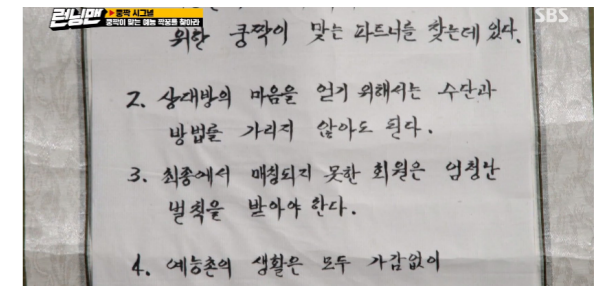 런닝맨
쿵짝 시그널
쿵짝이 맞는 예능 짝꿍을 찾아라
SBS
위한 쿵짝이 맞는 파트너를 찾는데 있다.
2. 상대방의 마음을 얻기 위해서는 수단과
방법를 가리지 않아도 된다.
3. 최종에서 매칭되지 못한 회원은 엄청난
벌칙을 받아야 한다.
4. 예능촌의 생활은 모두 가감없이